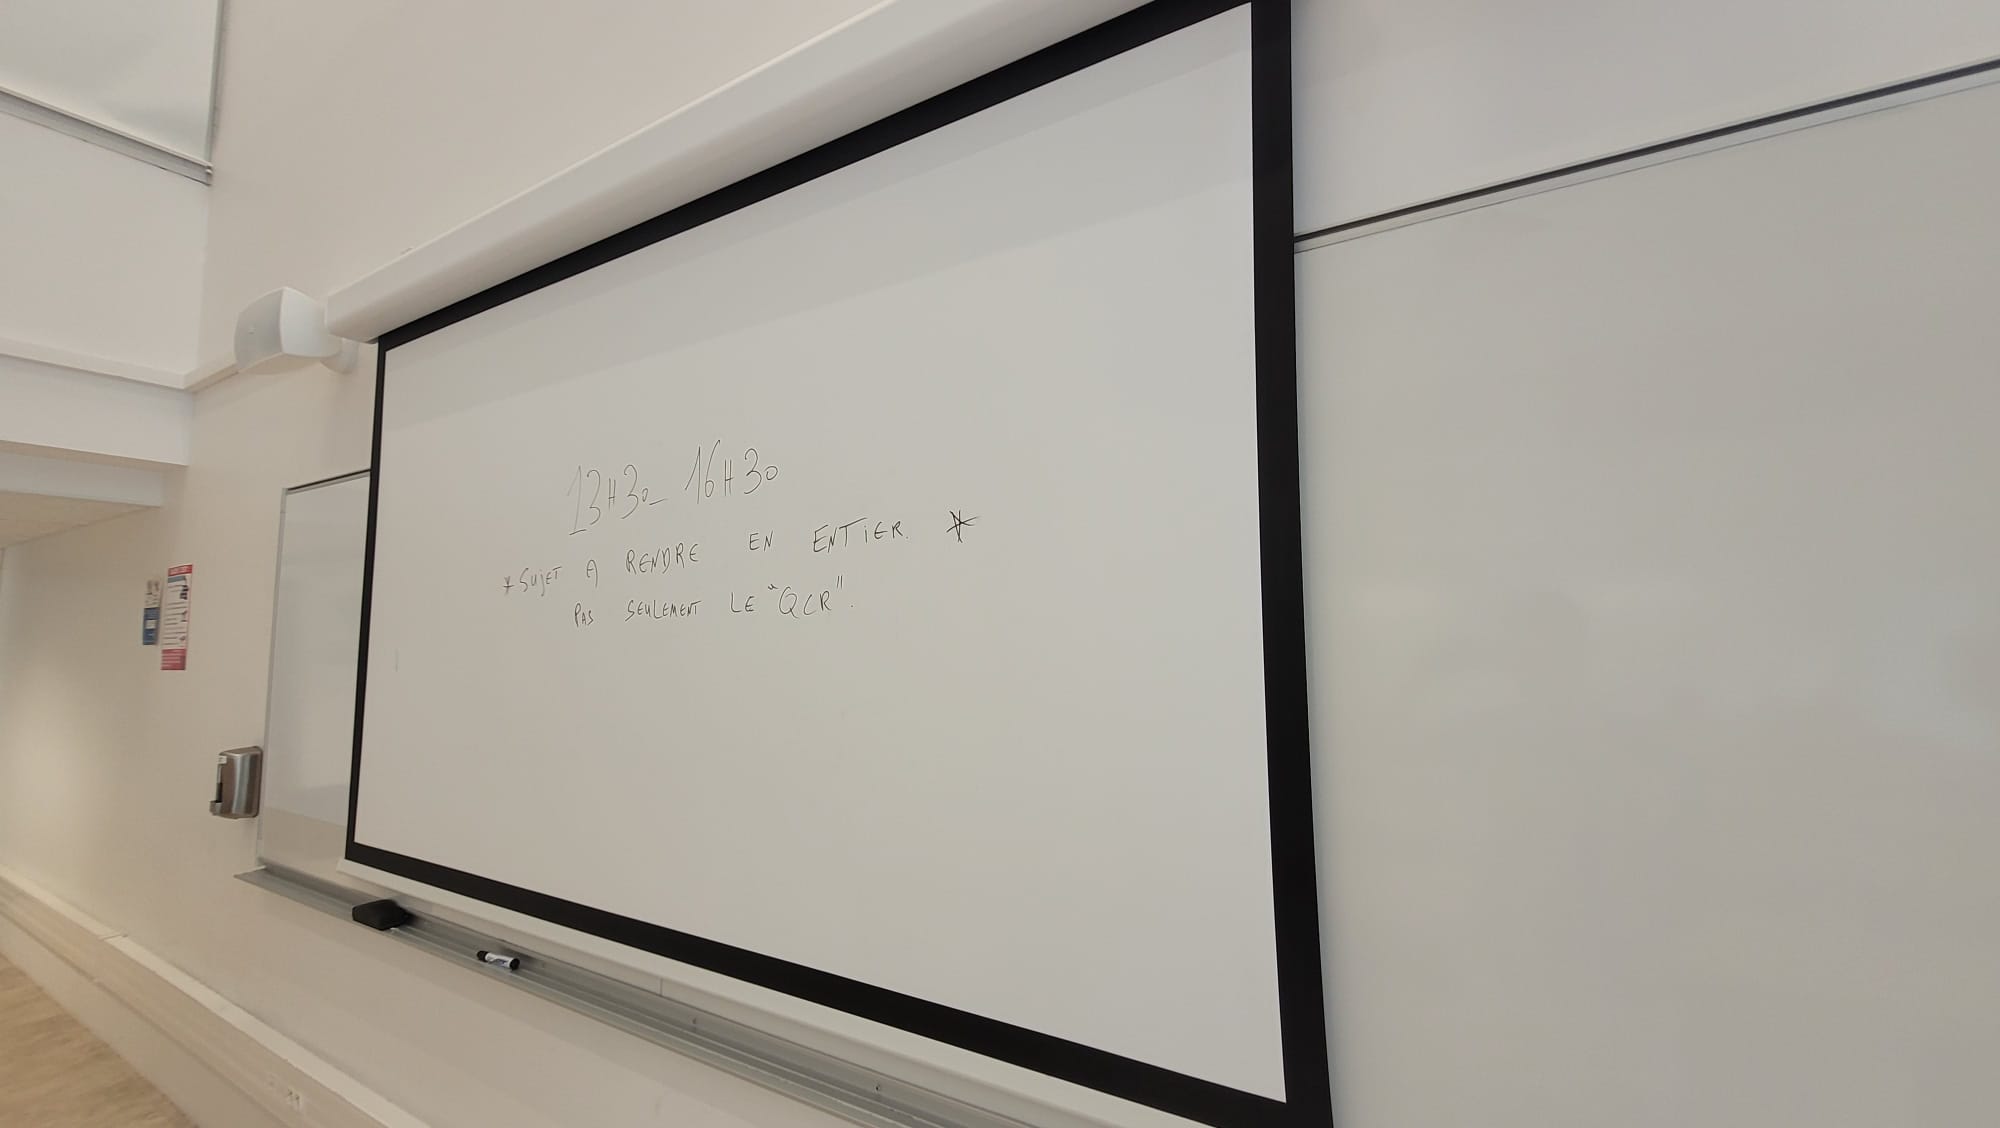 13H30_ 16H30
* SUJET A RENDRE EN ENTIER. *
PAS SEULEMENT LE "QCR".